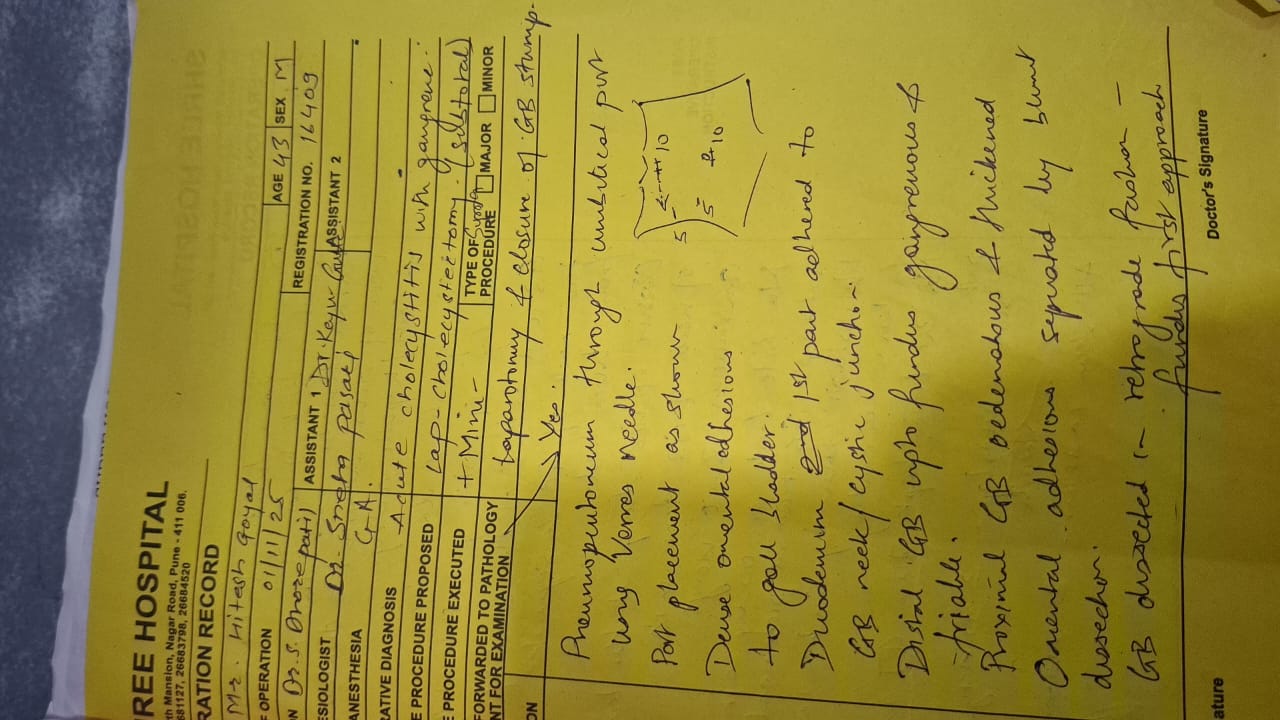 REE HOSPITAL
th Mansion, Nagar Road, Pune - 411 006.
681127, 26683798, 26684520
RATION RECORD
Mr. Hitesh Goyal AGE 43 SEX M
F OPERATION 01/11/25 REGISTRATION NO. 16409
N Dr. S. Dr. ASSISTANT 1 Dr. Keyur ASSISTANT 2
ESIOLOGIST Dr. Sneha
ANESTHESIA G.A.
RATIVE DIAGNOSIS Acute cholecystitis with gangrene.
E PROCEDURE PROPOSED Lap-cholecystectomy. (subtotal)
E PROCEDURE EXECUTED + Mini- TYPE OF PROCEDURE MAJOR MINOR
FORWARDED TO PATHOLOGY laparotomy & closure of GB stump.
NT FOR EXAMINATION Yes.
ON
Pneumoperitoneum through umbilical port
using Verres needle.
Port placement as shown
5 5 10
Dense omental adhesions
to gall bladder.
Duodenum 2nd 1st part adhered to
GB neck/cystic junction.
Distal GB upto fundus gangrenous &
friable.
Proximal GB oedematous & thickened
Omental adhesions separated by blunt
dissection.
GB dissected in retrograde fashion –
fundus first approach
ature Doctor's Signature